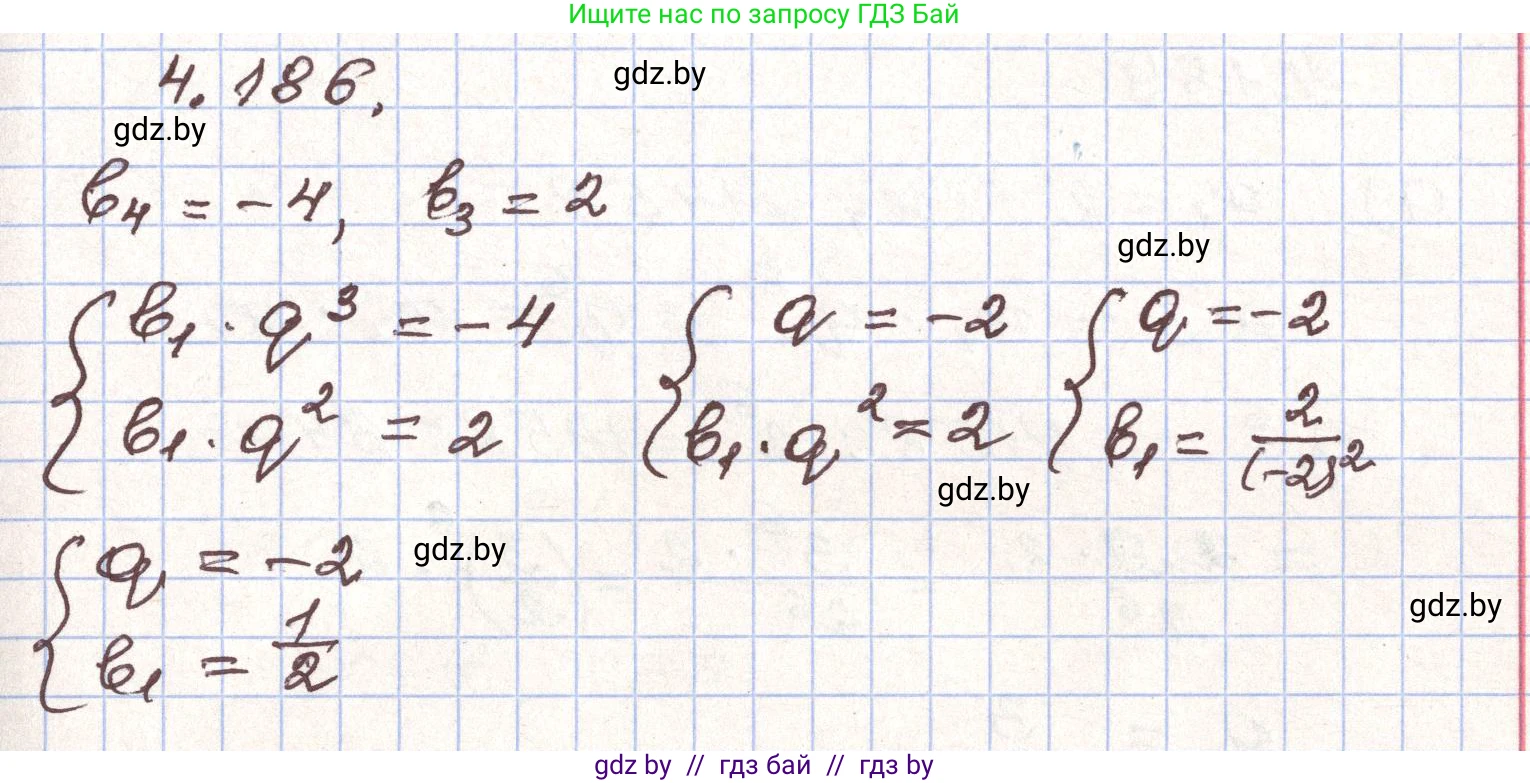 Ищите нас по запросу ГДЗ Бай
4.186.
gdz.by
gdz.by
b₄ = -4, b₃ = 2
gdz.by
{ b₁ · q³ = -4 { q = -2 { q = -2
b₁ · q² = 2 b₁ · q² = 2 b₁ = 2/(-2)²
gdz.by
{ q = -2
gdz.by
b₁ = 1/2
gdz.by
gdz by // гдз бай // гдз by